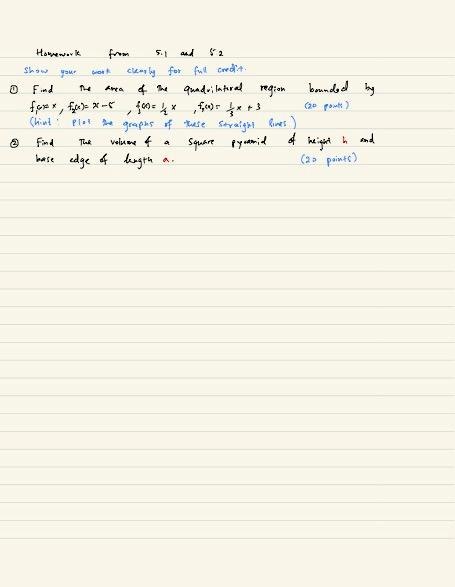 Homework from 5.1 and 5.2
Show your work clearly for full credit.
① Find the area of the quadrilateral region bounded by
f₁(x)= x, f₂(x)= x-5, f₃(x)= 1/2 x, f₄(x)= 1/3 x + 3 (20 points)
(hint: Plot the graphs of these straight lines)
② Find the volume of a square pyramid of height h and
base edge of length a. (20 points)